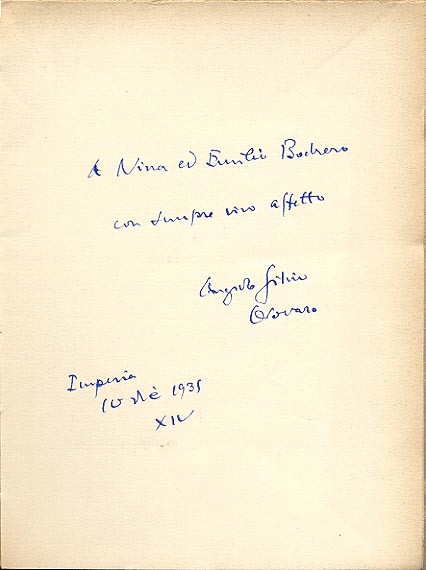 A Nina ed Emilio Bochero
con sempre vivo affetto
Angiolo Silvio
Novaro
Imperia
1935
XIV